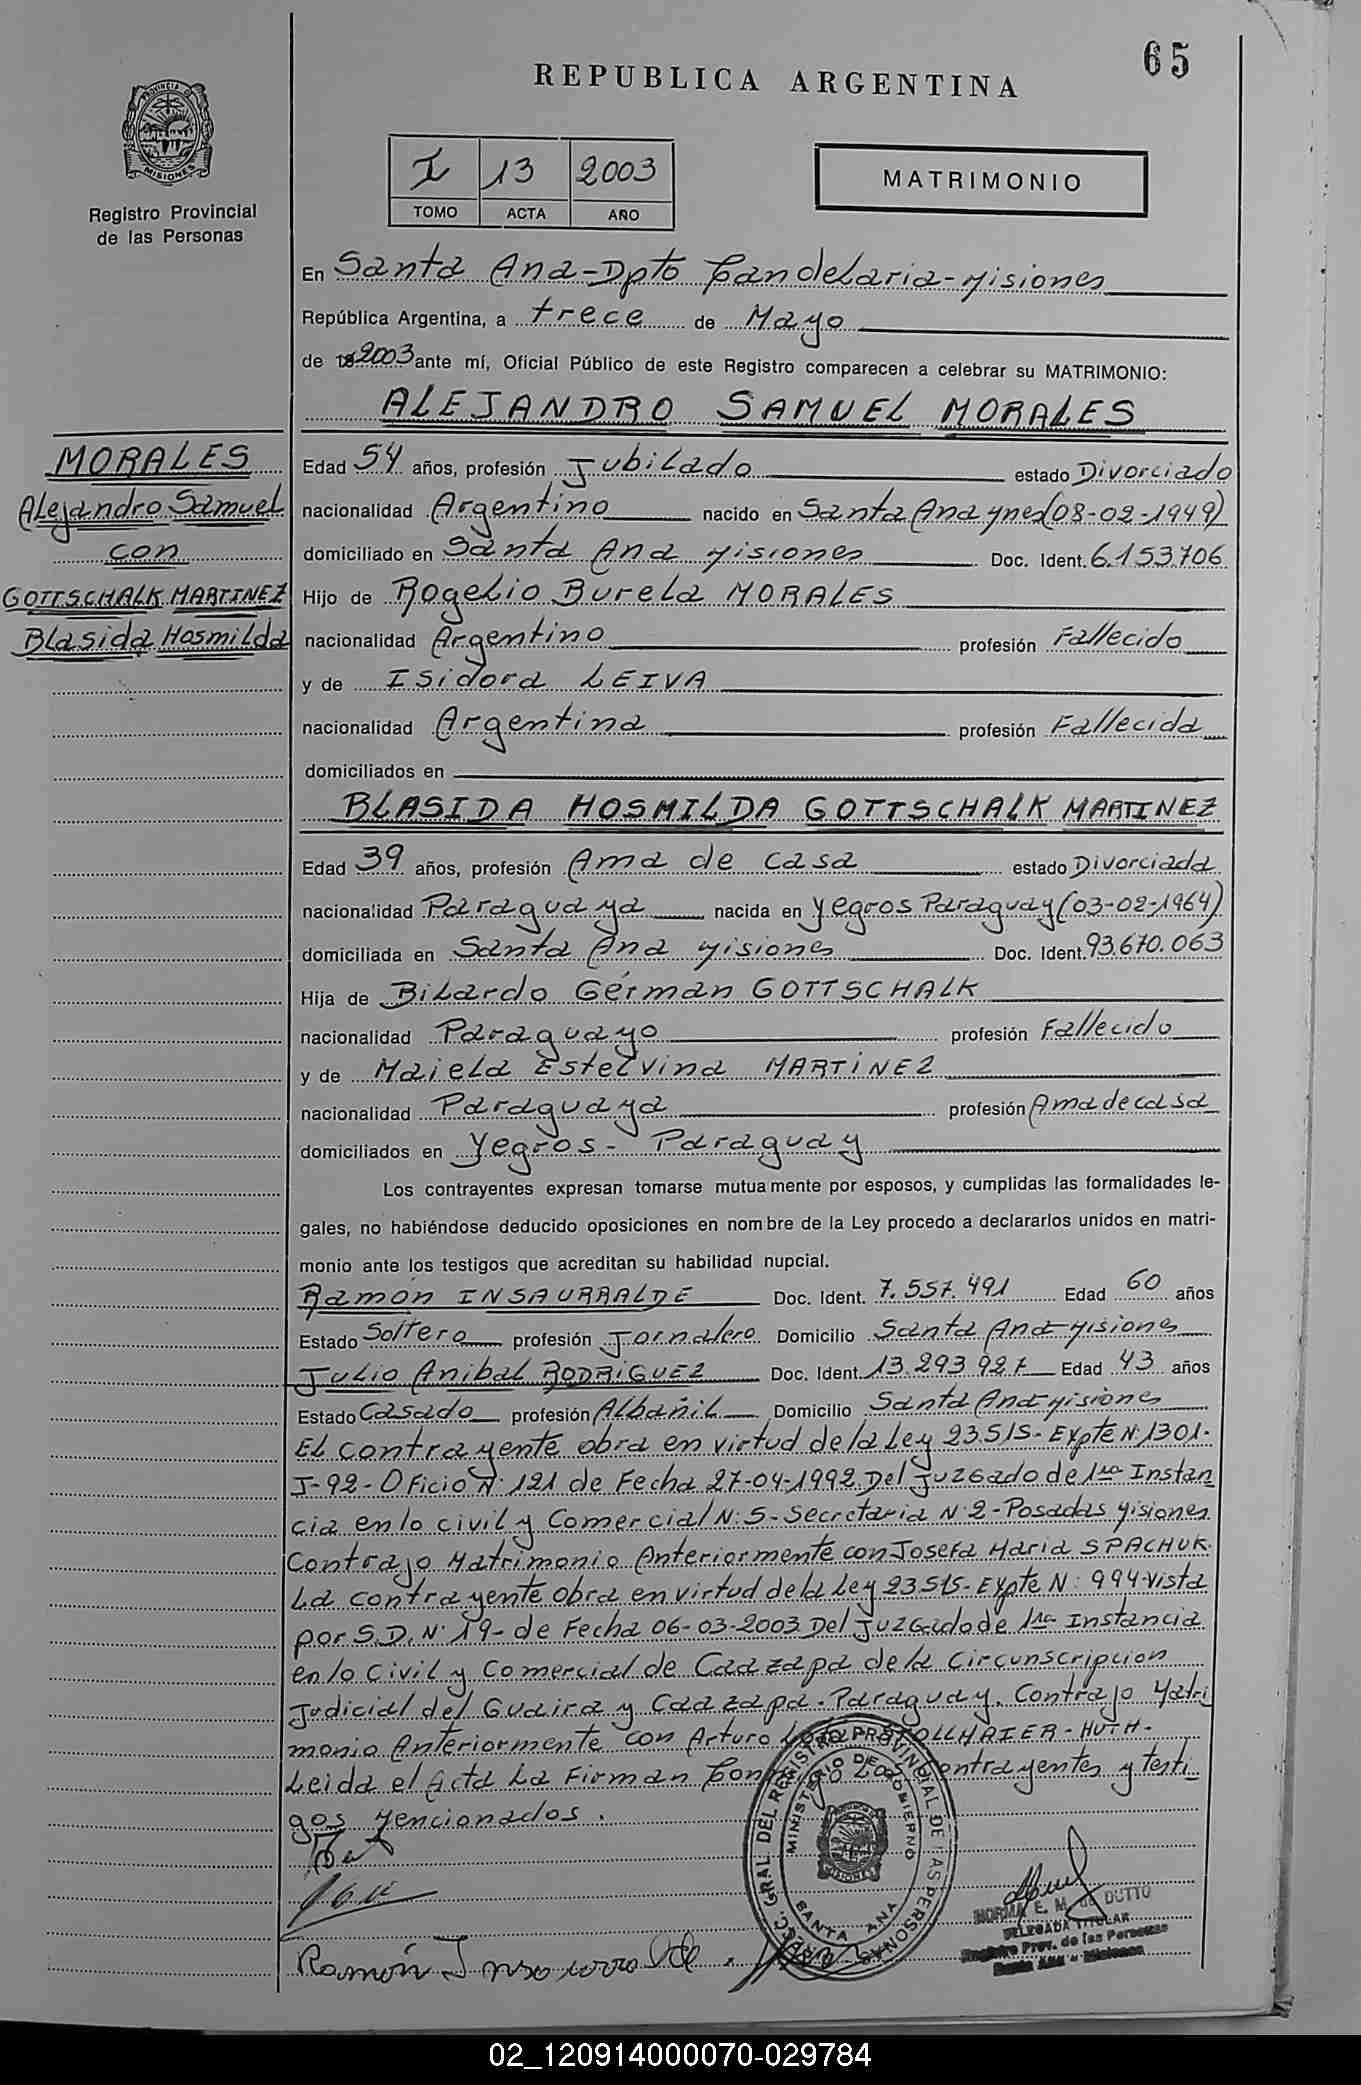 65
REPUBLICA ARGENTINA
PROVINCIA DE
MISIONES
Registro Provincial
de las Personas
I 13 2003
TOMO ACTA AÑO
MATRIMONIO
En Santa Ana-Dpto Candelaria-Misiones
República Argentina, a trece de Mayo
de 2003 ante mí, Oficial Público de este Registro comparecen a celebrar su MATRIMONIO:
ALEJANDRO SAMUEL MORALES
MORALES
Alejandro Samuel
con
GOTTSCHALK MARTINEZ
Blasida Hosmilda
Edad 54 años, profesión Jubilado estado Divorciado
nacionalidad Argentino nacido en Santa Ana Mnes (08-02-1949)
domiciliado en Santa Ana Misiones Doc. Ident. 6.153.706
Hijo de Rogelio Burela MORALES
nacionalidad Argentino profesión Fallecido
y de Isidora LEIVA
nacionalidad Argentina profesión Fallecida
domiciliados en
BLASIDA HOSMILDA GOTTSCHALK MARTINEZ
Edad 39 años, profesión Ama de casa estado Divorciada
nacionalidad Paraguaya nacida en Yegros Paraguay (03-02-1964)
domiciliada en Santa Ana Misiones Doc. Ident. 93.670.063
Hija de Bilardo Gérman GOTTSCHALK
nacionalidad Paraguayo profesión Fallecido
y de Maiela Estelvina MARTINEZ
nacionalidad Paraguaya profesión Ama de casa
domiciliados en Yegros - Paraguay
Los contrayentes expresan tomarse mutuamente por esposos, y cumplidas las formalidades le-
gales, no habiéndose deducido oposiciones en nombre de la Ley procedo a declararlos unidos en matri-
monio ante los testigos que acreditan su habilidad nupcial.
Ramón INSAURRALDE Doc. Ident. 7.557.491 Edad 60 años
Estado Soltero profesión Jornalero Domicilio Santa Ana Misiones
Julio Anibal RODRIGUEZ Doc. Ident. 13.293.927 Edad 43 años
Estado Casado profesión Albañil Domicilio Santa Ana Misiones
El contrayente obra en virtud de la Ley 23515- Expte N: 1301-
I-92- Oficio N: 121 de Fecha 27-04-1992 Del Juzgado de 1ra Instan
cia en lo civil y Comercial N: 5- Secretaria N: 2- Posadas Misiones.
Contrajo Matrimonio Anteriormente con Josefa Maria SPACHUK.
La contrayente obra en virtud de la Ley 23515- Expte N: 994- Vista
por S.D. N: 19- de Fecha 06-03-2003 Del Juzgado de 1ra Instancia
en lo Civil y Comercial de Caazapa de la Circunscripcion
Judicial del Guaira y Caazapa- Paraguay. Contrajo Matri
monio Anteriormente con Arturo HUTH-
Leida el Acta La Firman Conmigo Los Contrayentes y testi
gos Mencionados.
DIREC. GRAL. DEL REGISTRO PROVINCIAL DE LAS PERSONAS
MINISTERIO DE GOBIERNO
MISIONES
SANTA ANA
NORMA E. M. de DUTTO
DELEGADA TITULAR
Registro Prov. de las Personas
Santa Ana - Misiones
Ramón Insaurralde
02_120914000070-029784